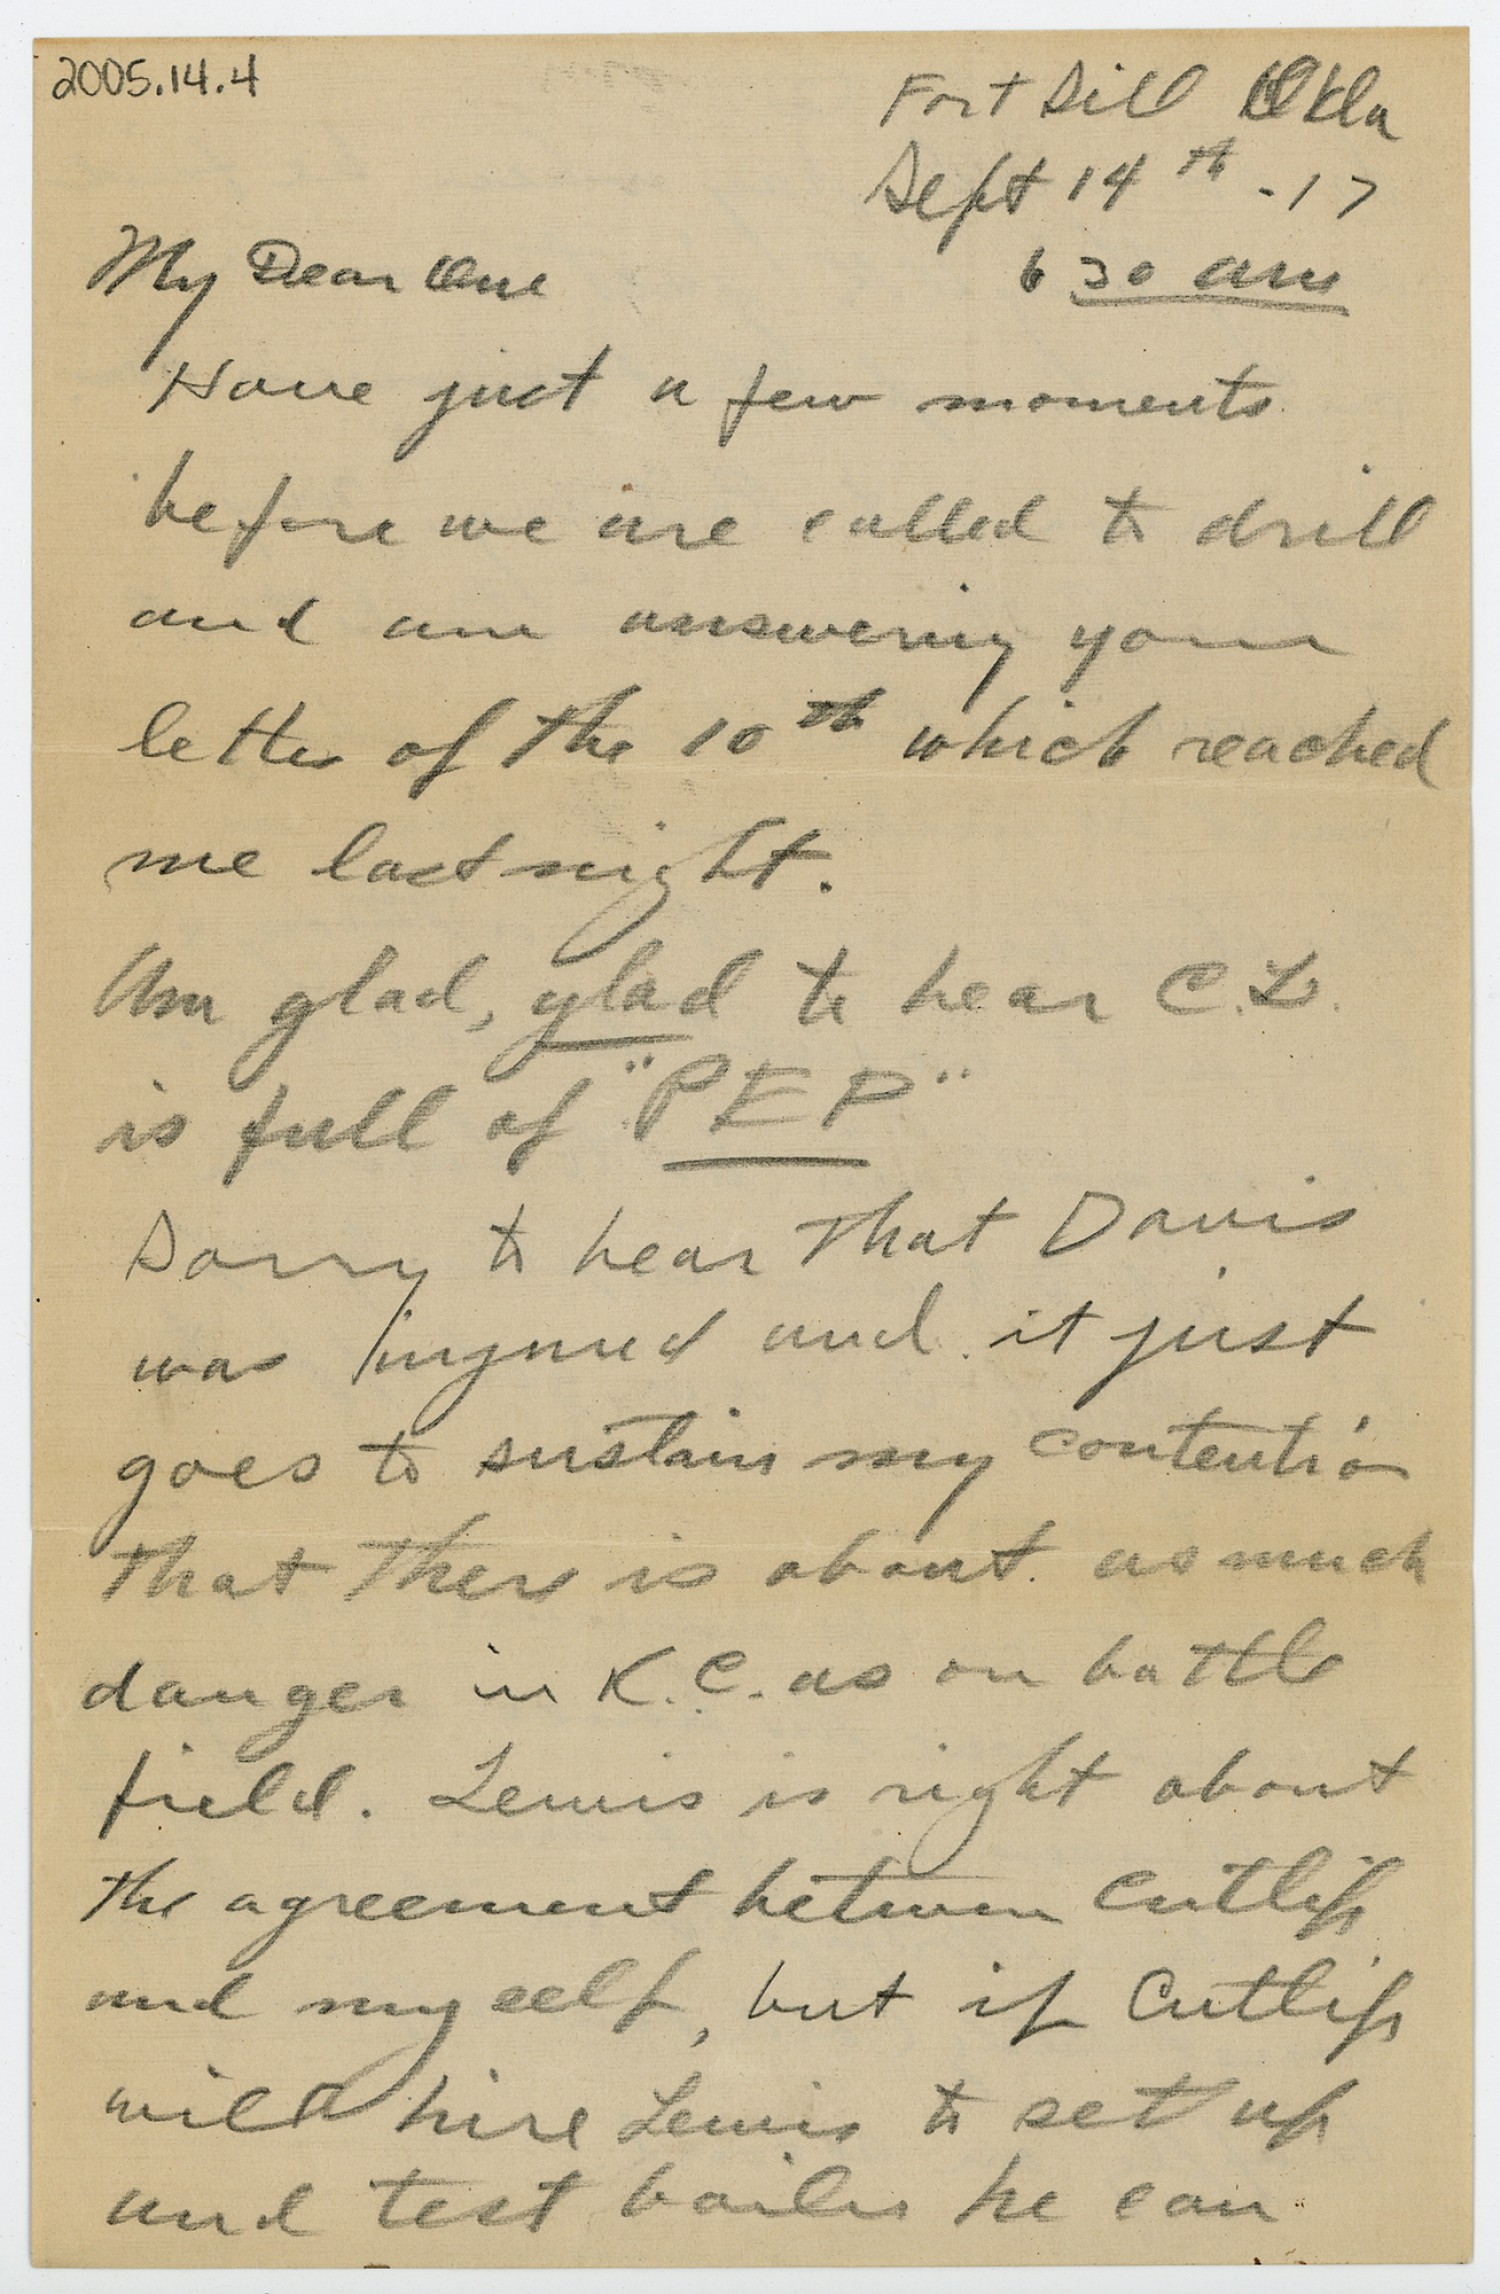 2005.14.4
Fort Sill Okla
Sept 14th -17
6 30 am
My Dear One
Have just a few moments
before we are called to drill
and am answering your
letter of the 10th which reached
me last night.
Am glad, glad to hear C.L.
is full of "PEP"
Sorry to hear that Davis
was injured and it just
goes to sustain my contention
that there is about as much
danger in K.C. as on battle
field. Lewis is right about
the agreement between Cutliff
and myself, but if Cutliff
will hire Lewis to set up
and test boiler he can